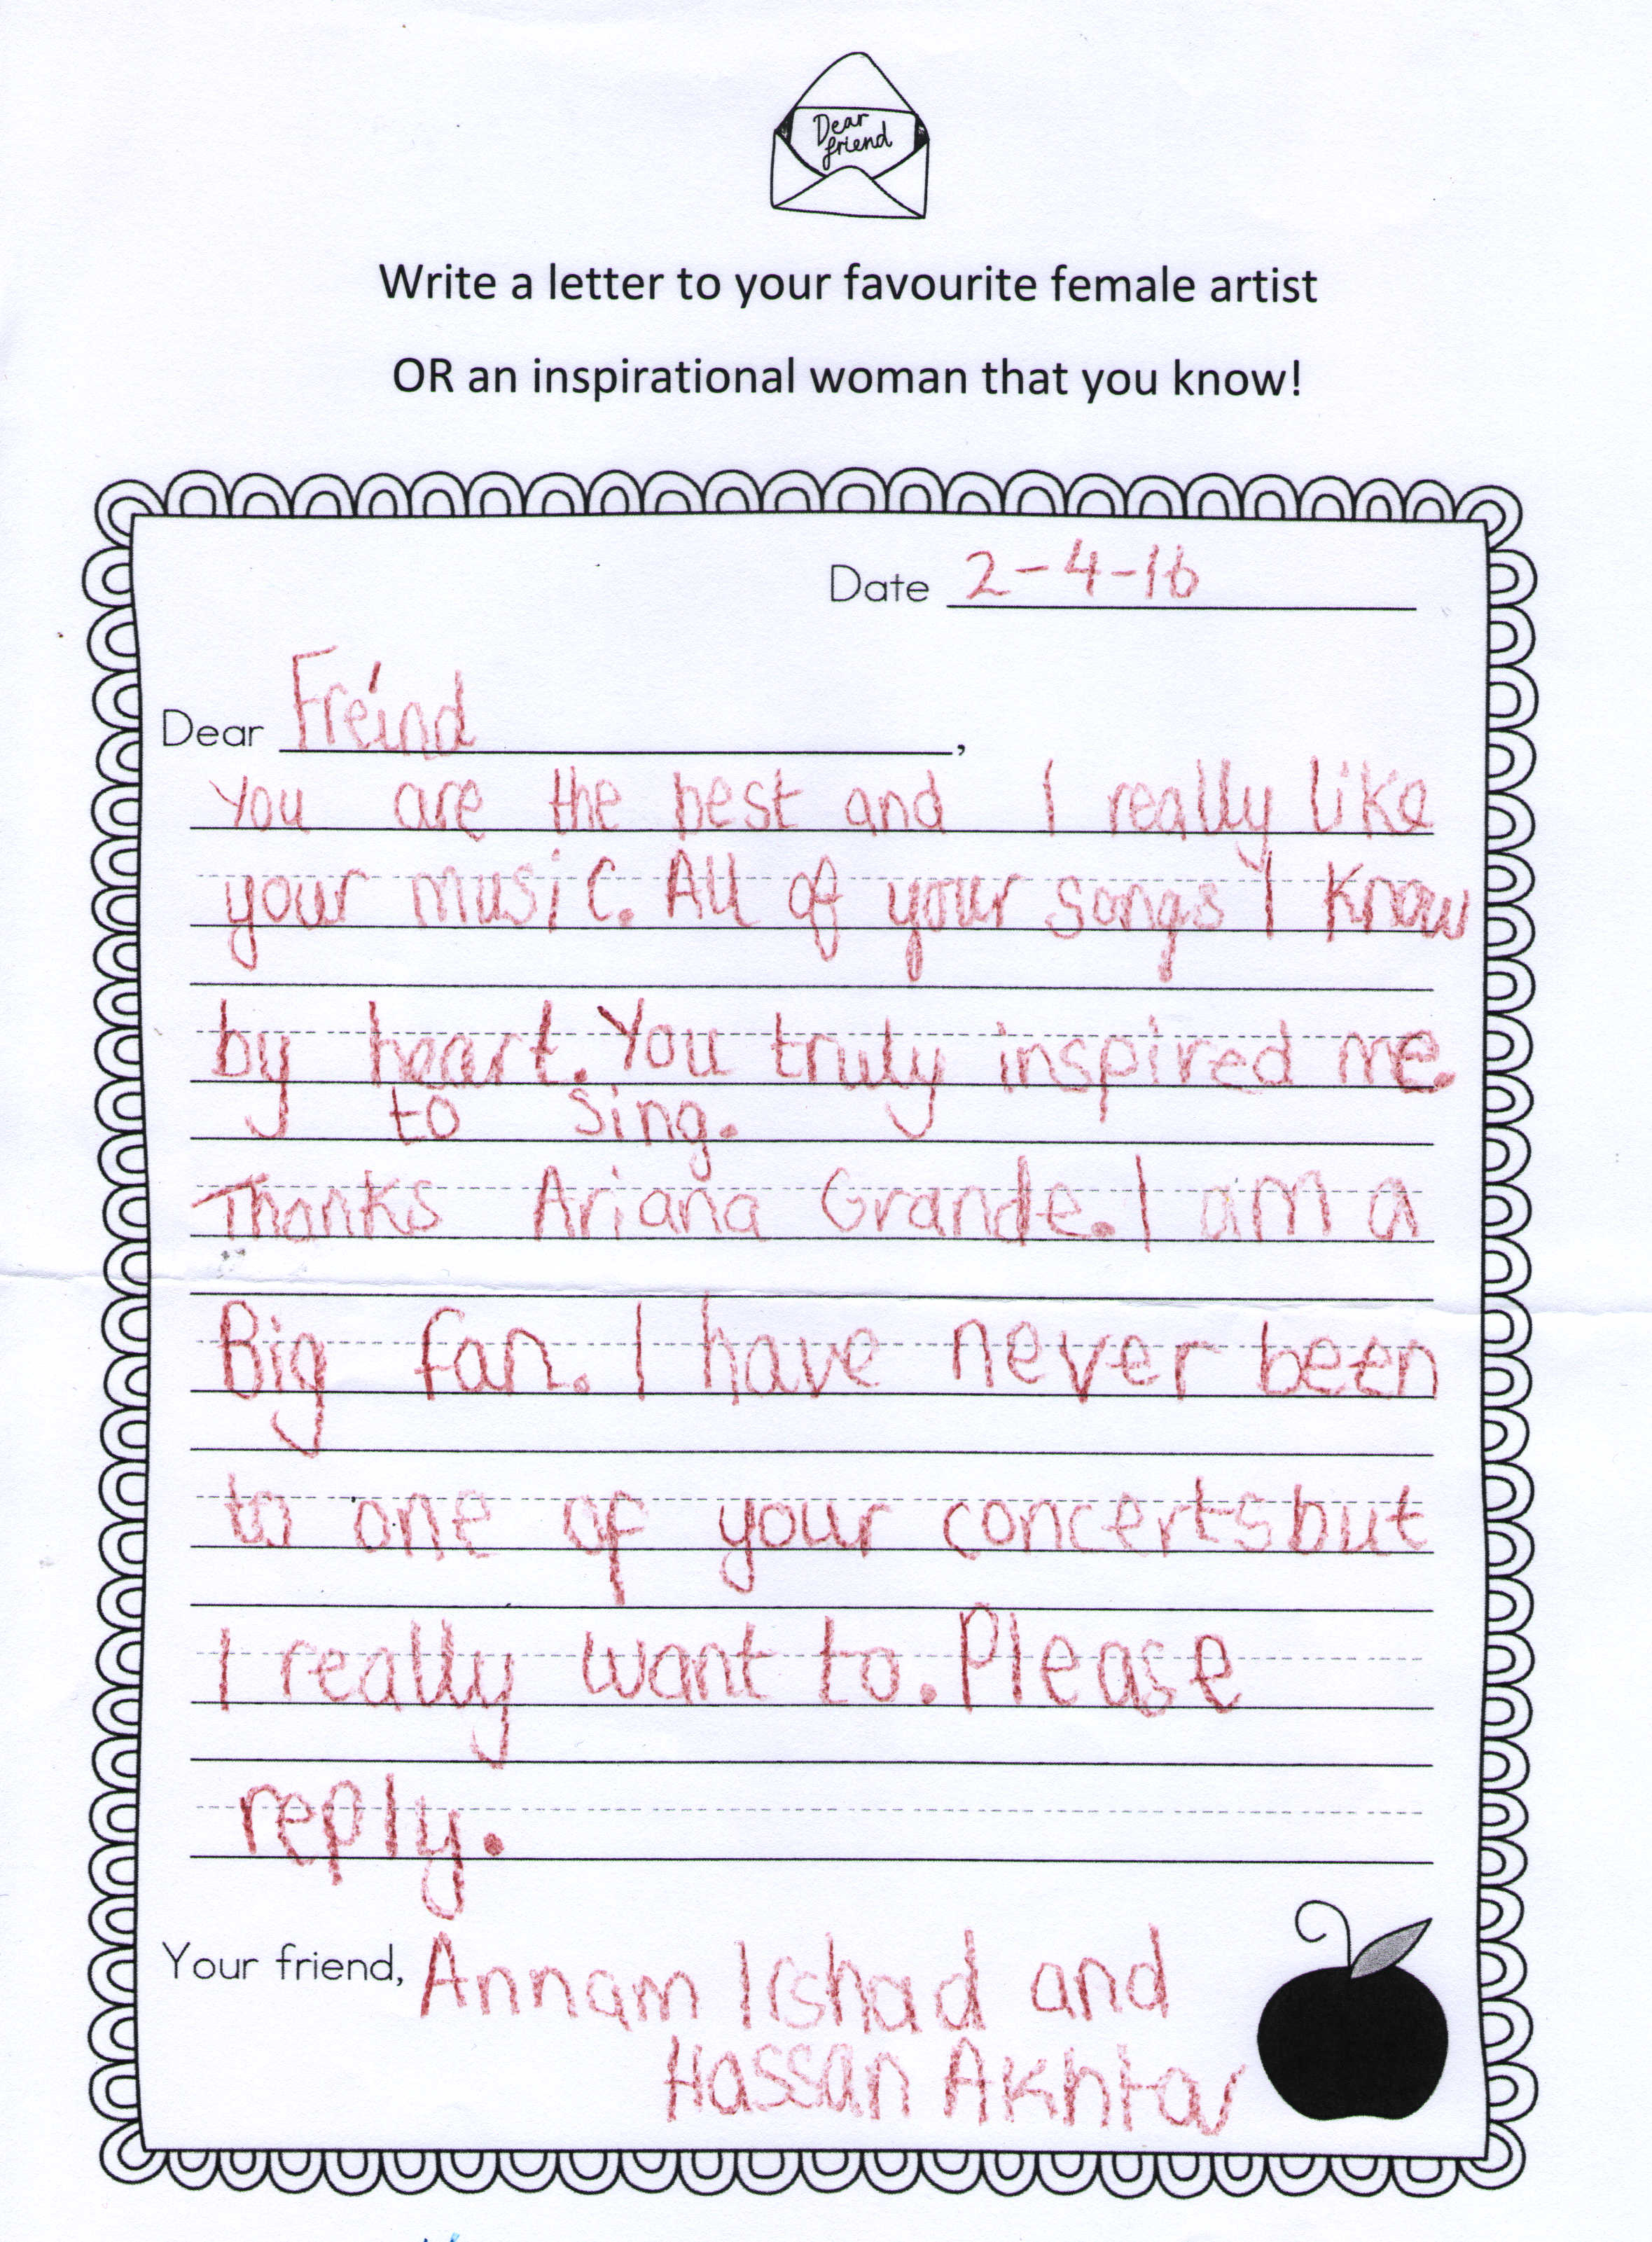 Dear
friend
Write a letter to your favourite female artist
OR an inspirational woman that you know!
Date 2-4-16
Dear Freind,
You are the best and I really like
your music. All of your songs I know
by heart. You truly inspired me.
to sing.
Thanks Ariana Grande. I am a
Big fan. I have never been
to one of your concerts but
I really want to. Please
reply.
Your friend, Annam Irshad and
Hassan Akhtar